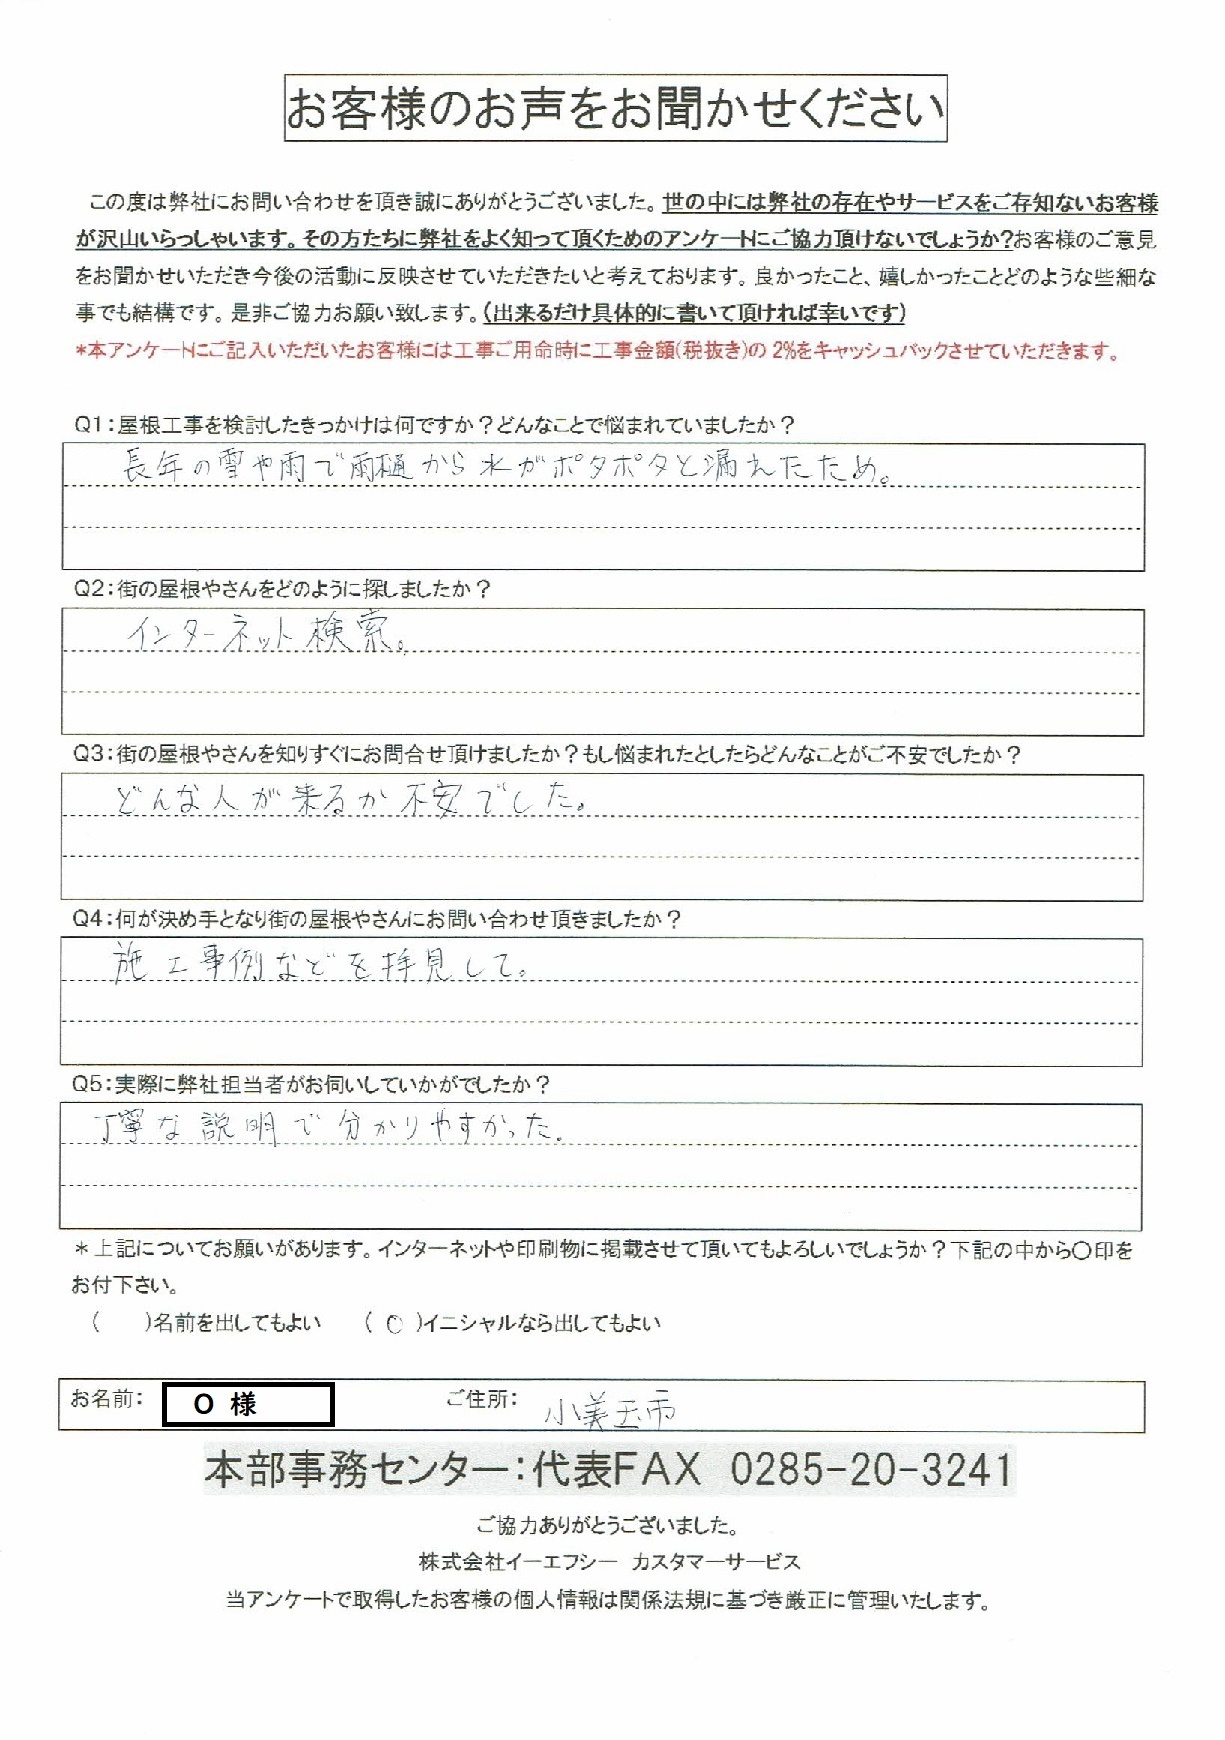 お客様のお声をお聞かせください
この度は弊社にお問い合わせを頂き誠にありがとうございました。世の中には弊社の存在やサービスをご存知ないお客様
が沢山いらっしゃいます。その方たちに弊社をよく知って頂くためのアンケートにご協力頂けないでしょうか?お客様のご意見
をお聞かせいただき今後の活動に反映させていただきたいと考えております。良かったこと、嬉しかったことどのような些細な
事でも結構です。是非ご協力お願い致します。(出来るだけ具体的に書いて頂ければ幸いです)
*本アンケートにご記入いただいたお客様には工事ご用命時に工事金額(税抜き)の2%をキャッシュバックさせていただきます。
Q1:屋根工事を検討したきっかけは何ですか?どんなことで悩まれていましたか?
長年の雪や雨で雨樋から水がポタポタと漏れたため。
Q2:街の屋根やさんをどのように探しましたか?
インターネット検索。
Q3:街の屋根やさんを知りすぐにお問合せ頂けましたか?もし悩まれたとしたらどんなことがご不安でしたか?
どんな人が来るか不安でした。
Q4:何が決め手となり街の屋根やさんにお問い合わせ頂きましたか?
施工事例などを拝見して。
Q5:実際に弊社担当者がお伺いしていかがでしたか?
丁寧な説明で分かりやすかった。
*上記についてお願いがあります。インターネットや印刷物に掲載させて頂いてもよろしいでしょうか?下記の中から〇印を
お付下さい。
(　　)名前を出してもよい　(〇)イニシャルなら出してもよい
お名前: O 様　ご住所: 小美玉市
本部事務センター:代表FAX 0285-20-3241
ご協力ありがとうございました。
株式会社イーエフシー カスタマーサービス
当アンケートで取得したお客様の個人情報は関係法規に基づき厳正に管理いたします。